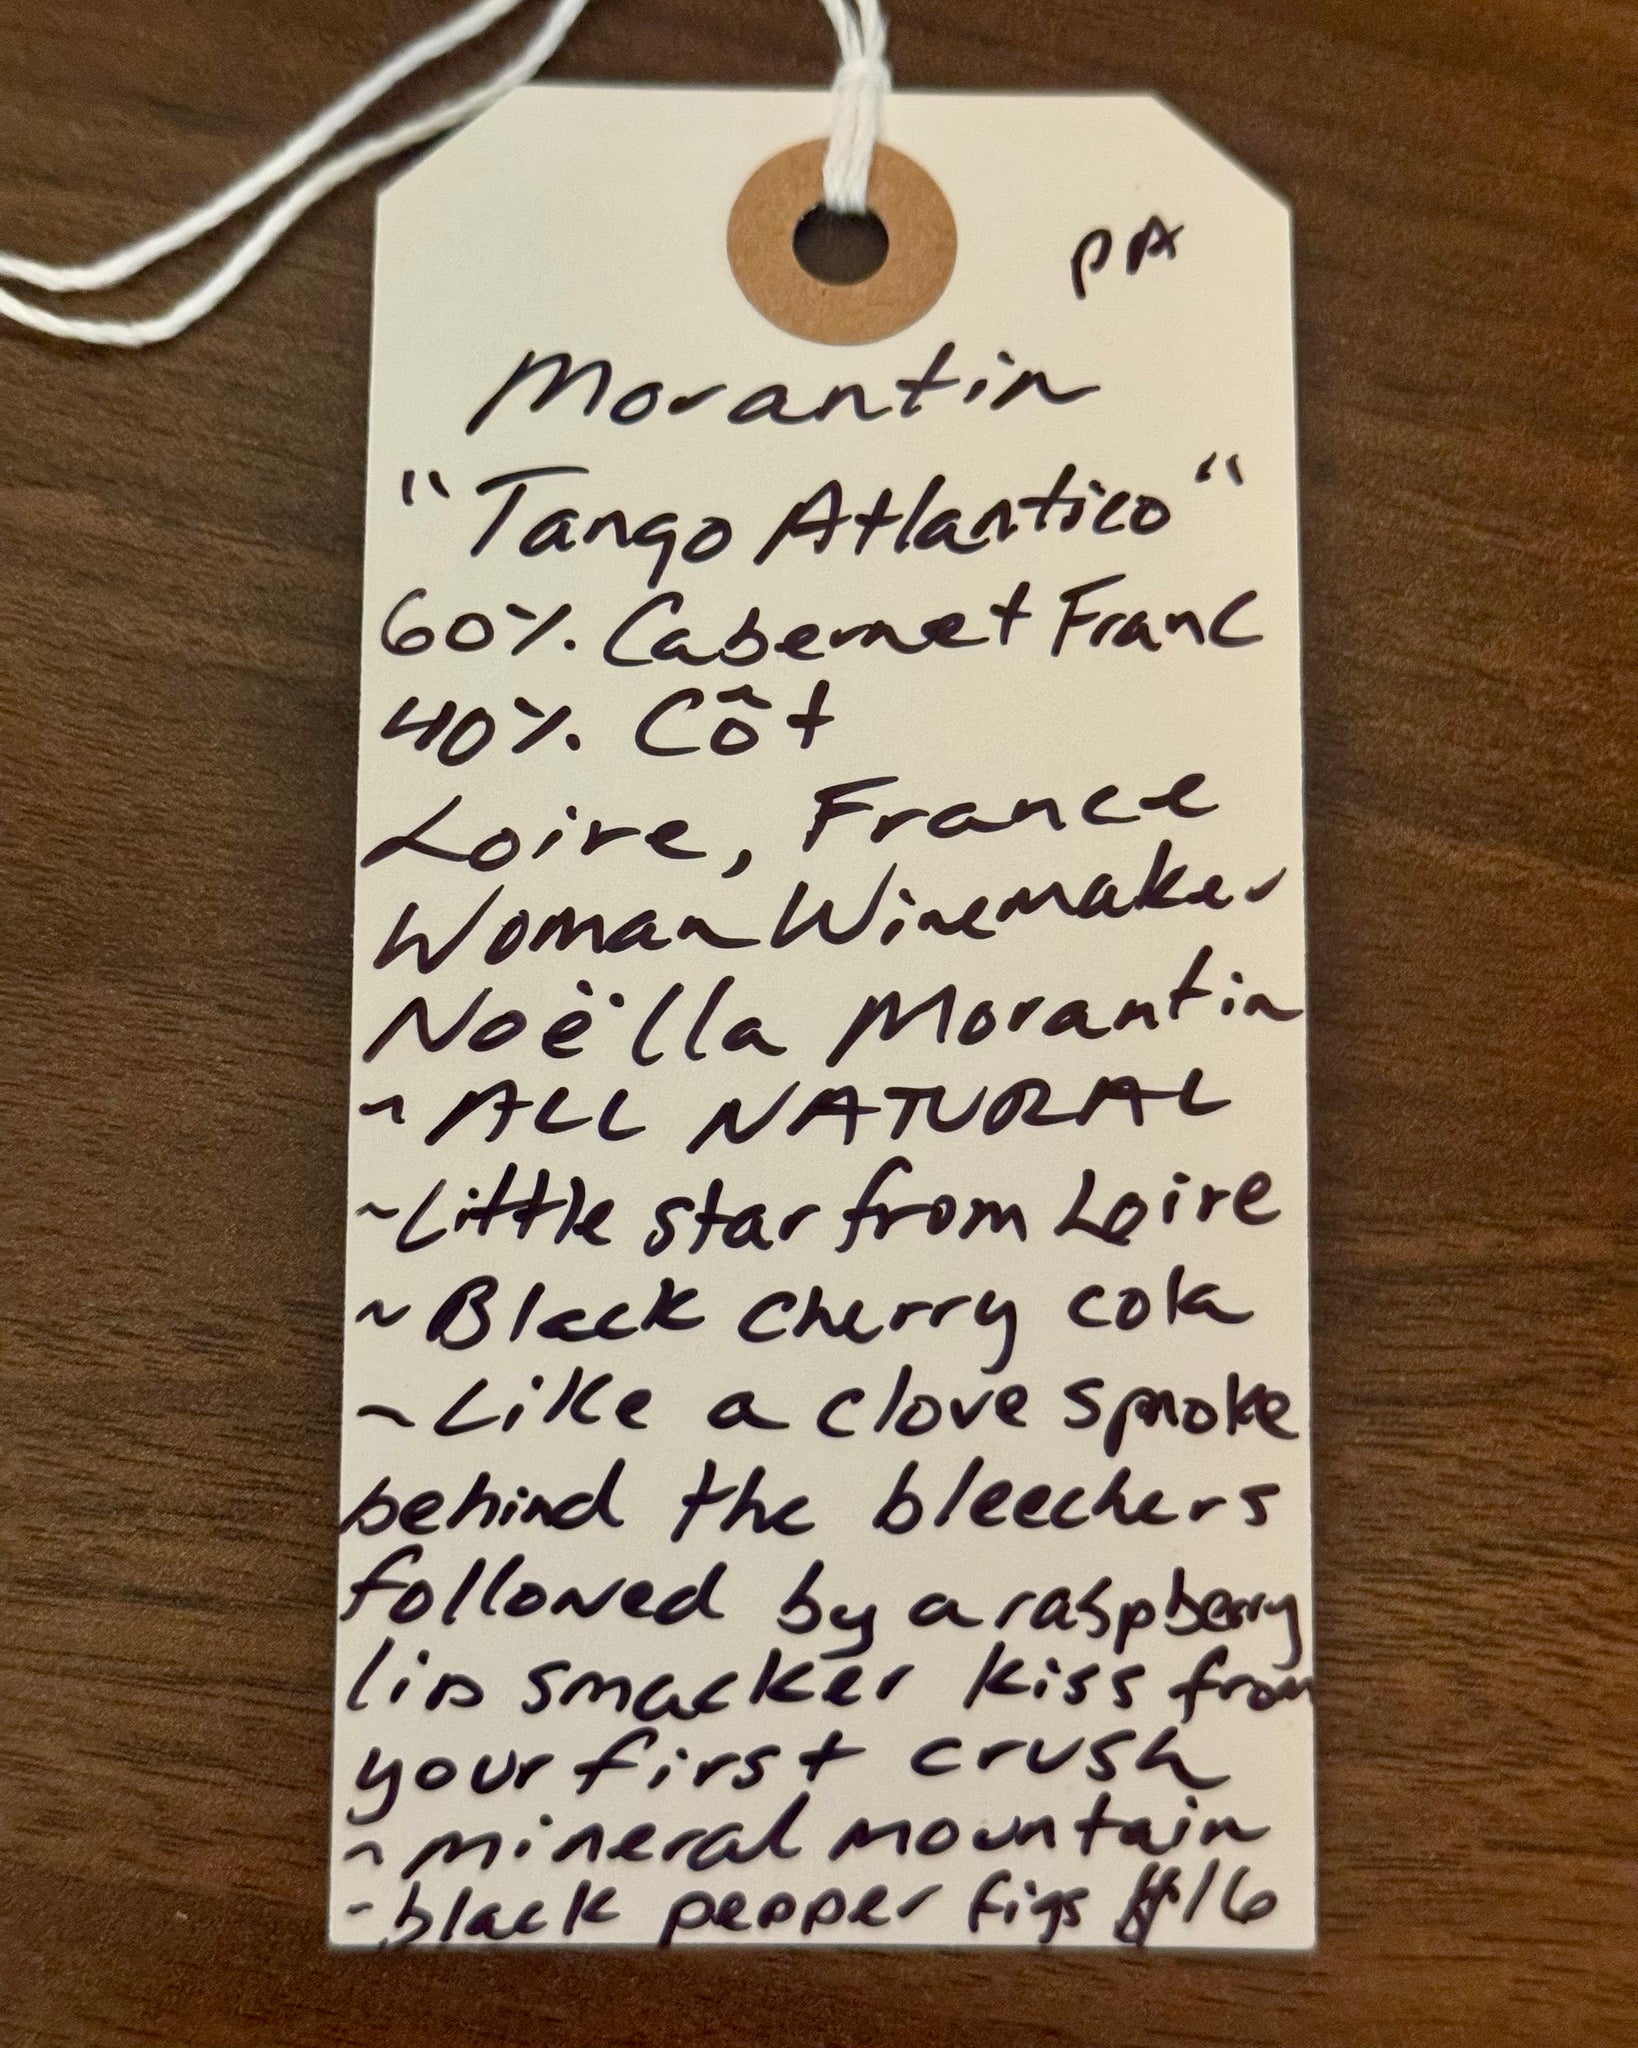 PA
Morantin
"Tango Atlantico"
60% Cabernet Franc
40% Côt
Loire, France
Woman Winemaker
Noëlla Morantin
~ ALL NATURAL
~ Little star from Loire
~ Black cherry cola
~ Like a clove smoke
behind the bleechers
followed by a raspberry
lip smacker kiss from
your first crush
~ mineral mountain
~ black pepper figs $16